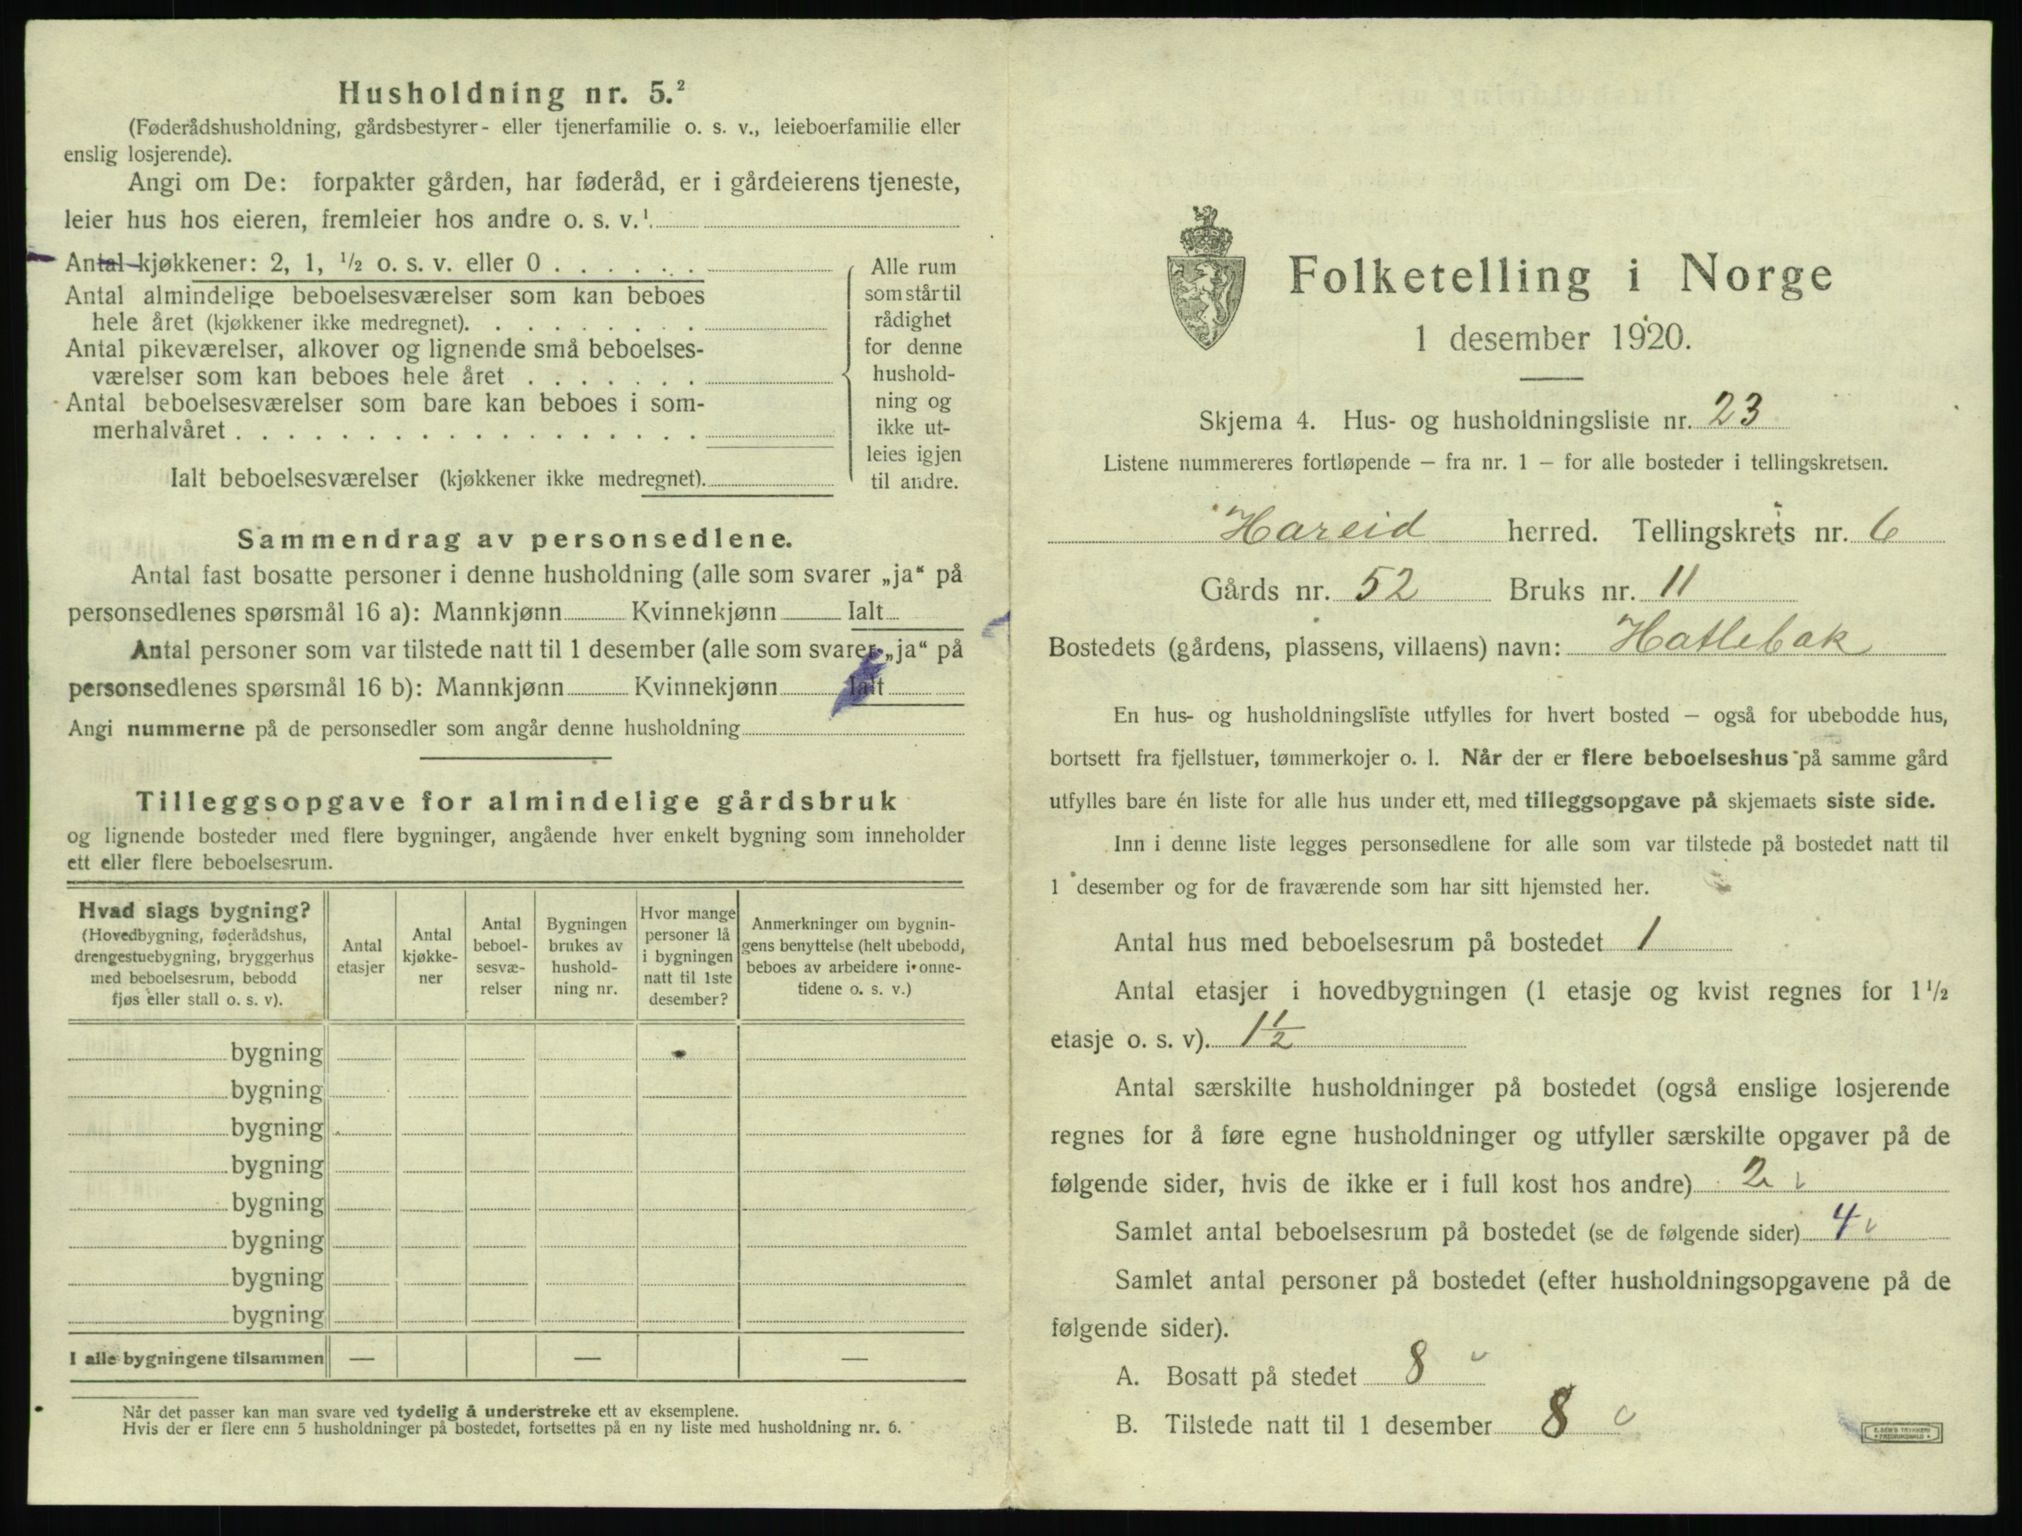 Husholdning nr. 5.²
(Føderådshusholdning, gårdsbestyrer- eller tjenerfamilie o. s. v., leieboerfamilie eller
enslig losjerende).
Angi om De: forpakter gården, har føderåd, er i gårdeierens tjeneste,
leier hus hos eieren, fremleier hos andre o. s. v.¹
Antal kjøkkener: 2, 1, ½ o. s. v. eller 0 . . . . . .
Antal almindelige beboelsesværelser som kan beboes
hele året (kjøkkener ikke medregnet). . . . . . . . .
Antal pikeværelser, alkover og lignende små beboelses-
værelser som kan beboes hele året . . . . . . .
Antal beboelsesværelser som bare kan beboes i som-
merhalvåret . . . . . . . . . . . . . . . . . .
Ialt beboelsesværelser (kjøkkener ikke medregnet).
Alle rum
som står til
rådighet
for denne
hushold-
ning og
ikke ut-
leies igjen
til andre.
Sammendrag av personsedlene.
Antal fast bosatte personer i denne husholdning (alle som svarer „ja“ på
personsedlenes spørsmål 16 a): Mannkjønn Kvinnekjønn Ialt
Antal personer som var tilstede natt til 1 desember (alle som svarer „ja“ på
personsedlenes spørsmål 16 b): Mannkjønn Kvinnekjønn Ialt
Angi nummerne på de personsedler som angår denne husholdning
Tilleggsopgave for almindelige gårdsbruk
og lignende bosteder med flere bygninger, angående hver enkelt bygning som inneholder
ett eller flere beboelsesrum.
Hvad slags bygning?
(Hovedbygning, føderådshus,
drengestuebygning, bryggerhus
med beboelsesrum, bebodd
fjøs eller stall o. s. v).
Antal
etasjer
Antal
kjøkke-
ner
Antal
beboel-
sesvæ-
relser
Bygningen
brukes av
hushold-
ning nr.
Hvor mange
personer lå
i bygningen
natt til 1ste
desember?
Anmerkninger om bygnin-
gens benyttelse (helt ubebodd,
beboes av arbeidere i onne-
tidene o. s. v.)
bygning
bygning
bygning
bygning
bygning
bygning
bygning
bygning
I alle bygningene tilsammen — — —
Når det passer kan man svare ved tydelig å understreke ett av eksemplene.
Hvis der er flere enn 5 husholdninger på bostedet, fortsettes på en ny liste med husholdning nr. 6.
Folketelling i Norge
1 desember 1920.
Skjema 4. Hus- og husholdningsliste nr. 23
Listene nummereres fortløpende – fra nr. 1 – for alle bosteder i tellingskretsen.
Hareid herred. Tellingskrets nr. 6
Gårds nr. 52 Bruks nr. 11
Bostedets (gårdens, plassens, villaens) navn: Hatlebak
En hus- og husholdningsliste utfylles for hvert bosted – også for ubebodde hus,
bortsett fra fjellstuer, tømmerkojer o. l. Når der er flere beboelseshus på samme gård
utfylles bare én liste for alle hus under ett, med tilleggsopgave på skjemaets siste side.
Inn i denne liste legges personsedlene for alle som var tilstede på bostedet natt til
1 desember og for de fraværende som har sitt hjemsted her.
Antal hus med beboelsesrum på bostedet 1
Antal etasjer i hovedbygningen (1 etasje og kvist regnes for 1½
etasje o. s. v). 1½
Antal særskilte husholdninger på bostedet (også enslige losjerende
regnes for å føre egne husholdninger og utfyller særskilte opgaver på de
følgende sider, hvis de ikke er i full kost hos andre) 2
Samlet antal beboelsesrum på bostedet (se de følgende sider) 4
Samlet antal personer på bostedet (efter husholdningsopgavene på de
følgende sider).
A. Bosatt på stedet 8
B. Tilstede natt til 1 desember 8